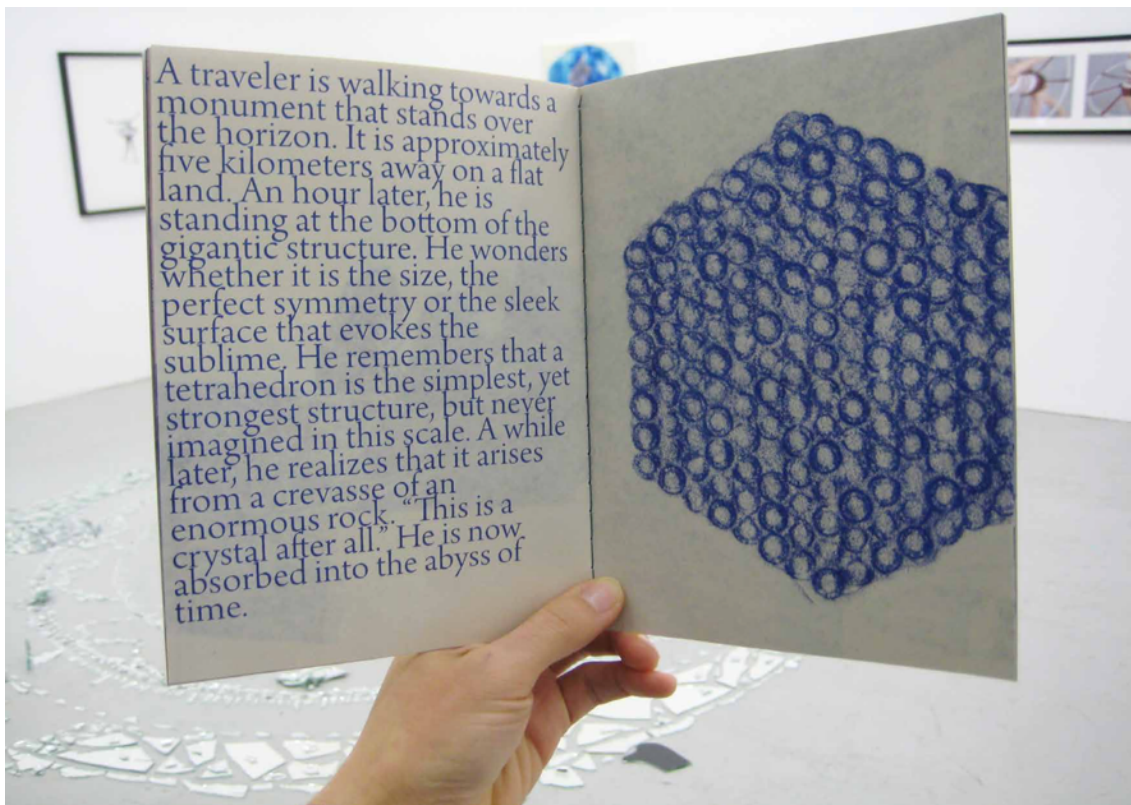 A traveler is walking towards a
monument that stands over
the horizon. It is approximately
five kilometers away on a flat
land. An hour later, he is
standing at the bottom of the
gigantic structure. He wonders
whether it is the size, the
perfect symmetry or the sleek
surface that evokes the
sublime. He remembers that a
tetrahedron is the simplest, yet
strongest structure, but never
imagined in this scale. A while
later, he realizes that it arises
from a crevasse of an
enormous rock. “This is a
crystal after all.” He is now
absorbed into the abyss of
time.